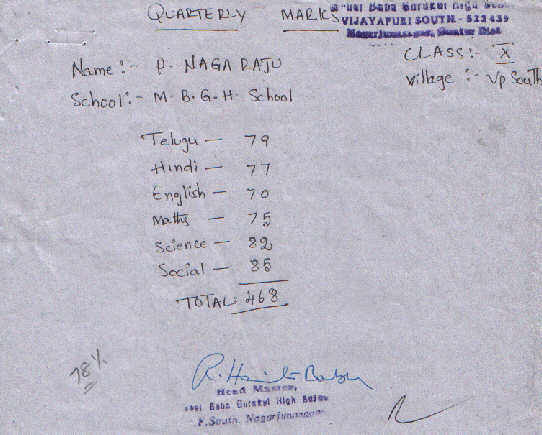 QUARTERLY MARKS
Baba Gurukul High
VIJAYAPURI SOUTH - 522439
Nagarjunasagar, Guntur Dist
CLASS:- X
Name:- P. NAGA RAJU
Village:- Vp South
School:- M.B.G.H. School
Telugu - 79
Hindi - 77
English - 70
Maths - 75
Science - 82
Social - 85
TOTAL 468
78%
Head Master,
Baba Gurukul High
P.South, Nagarjunasagar